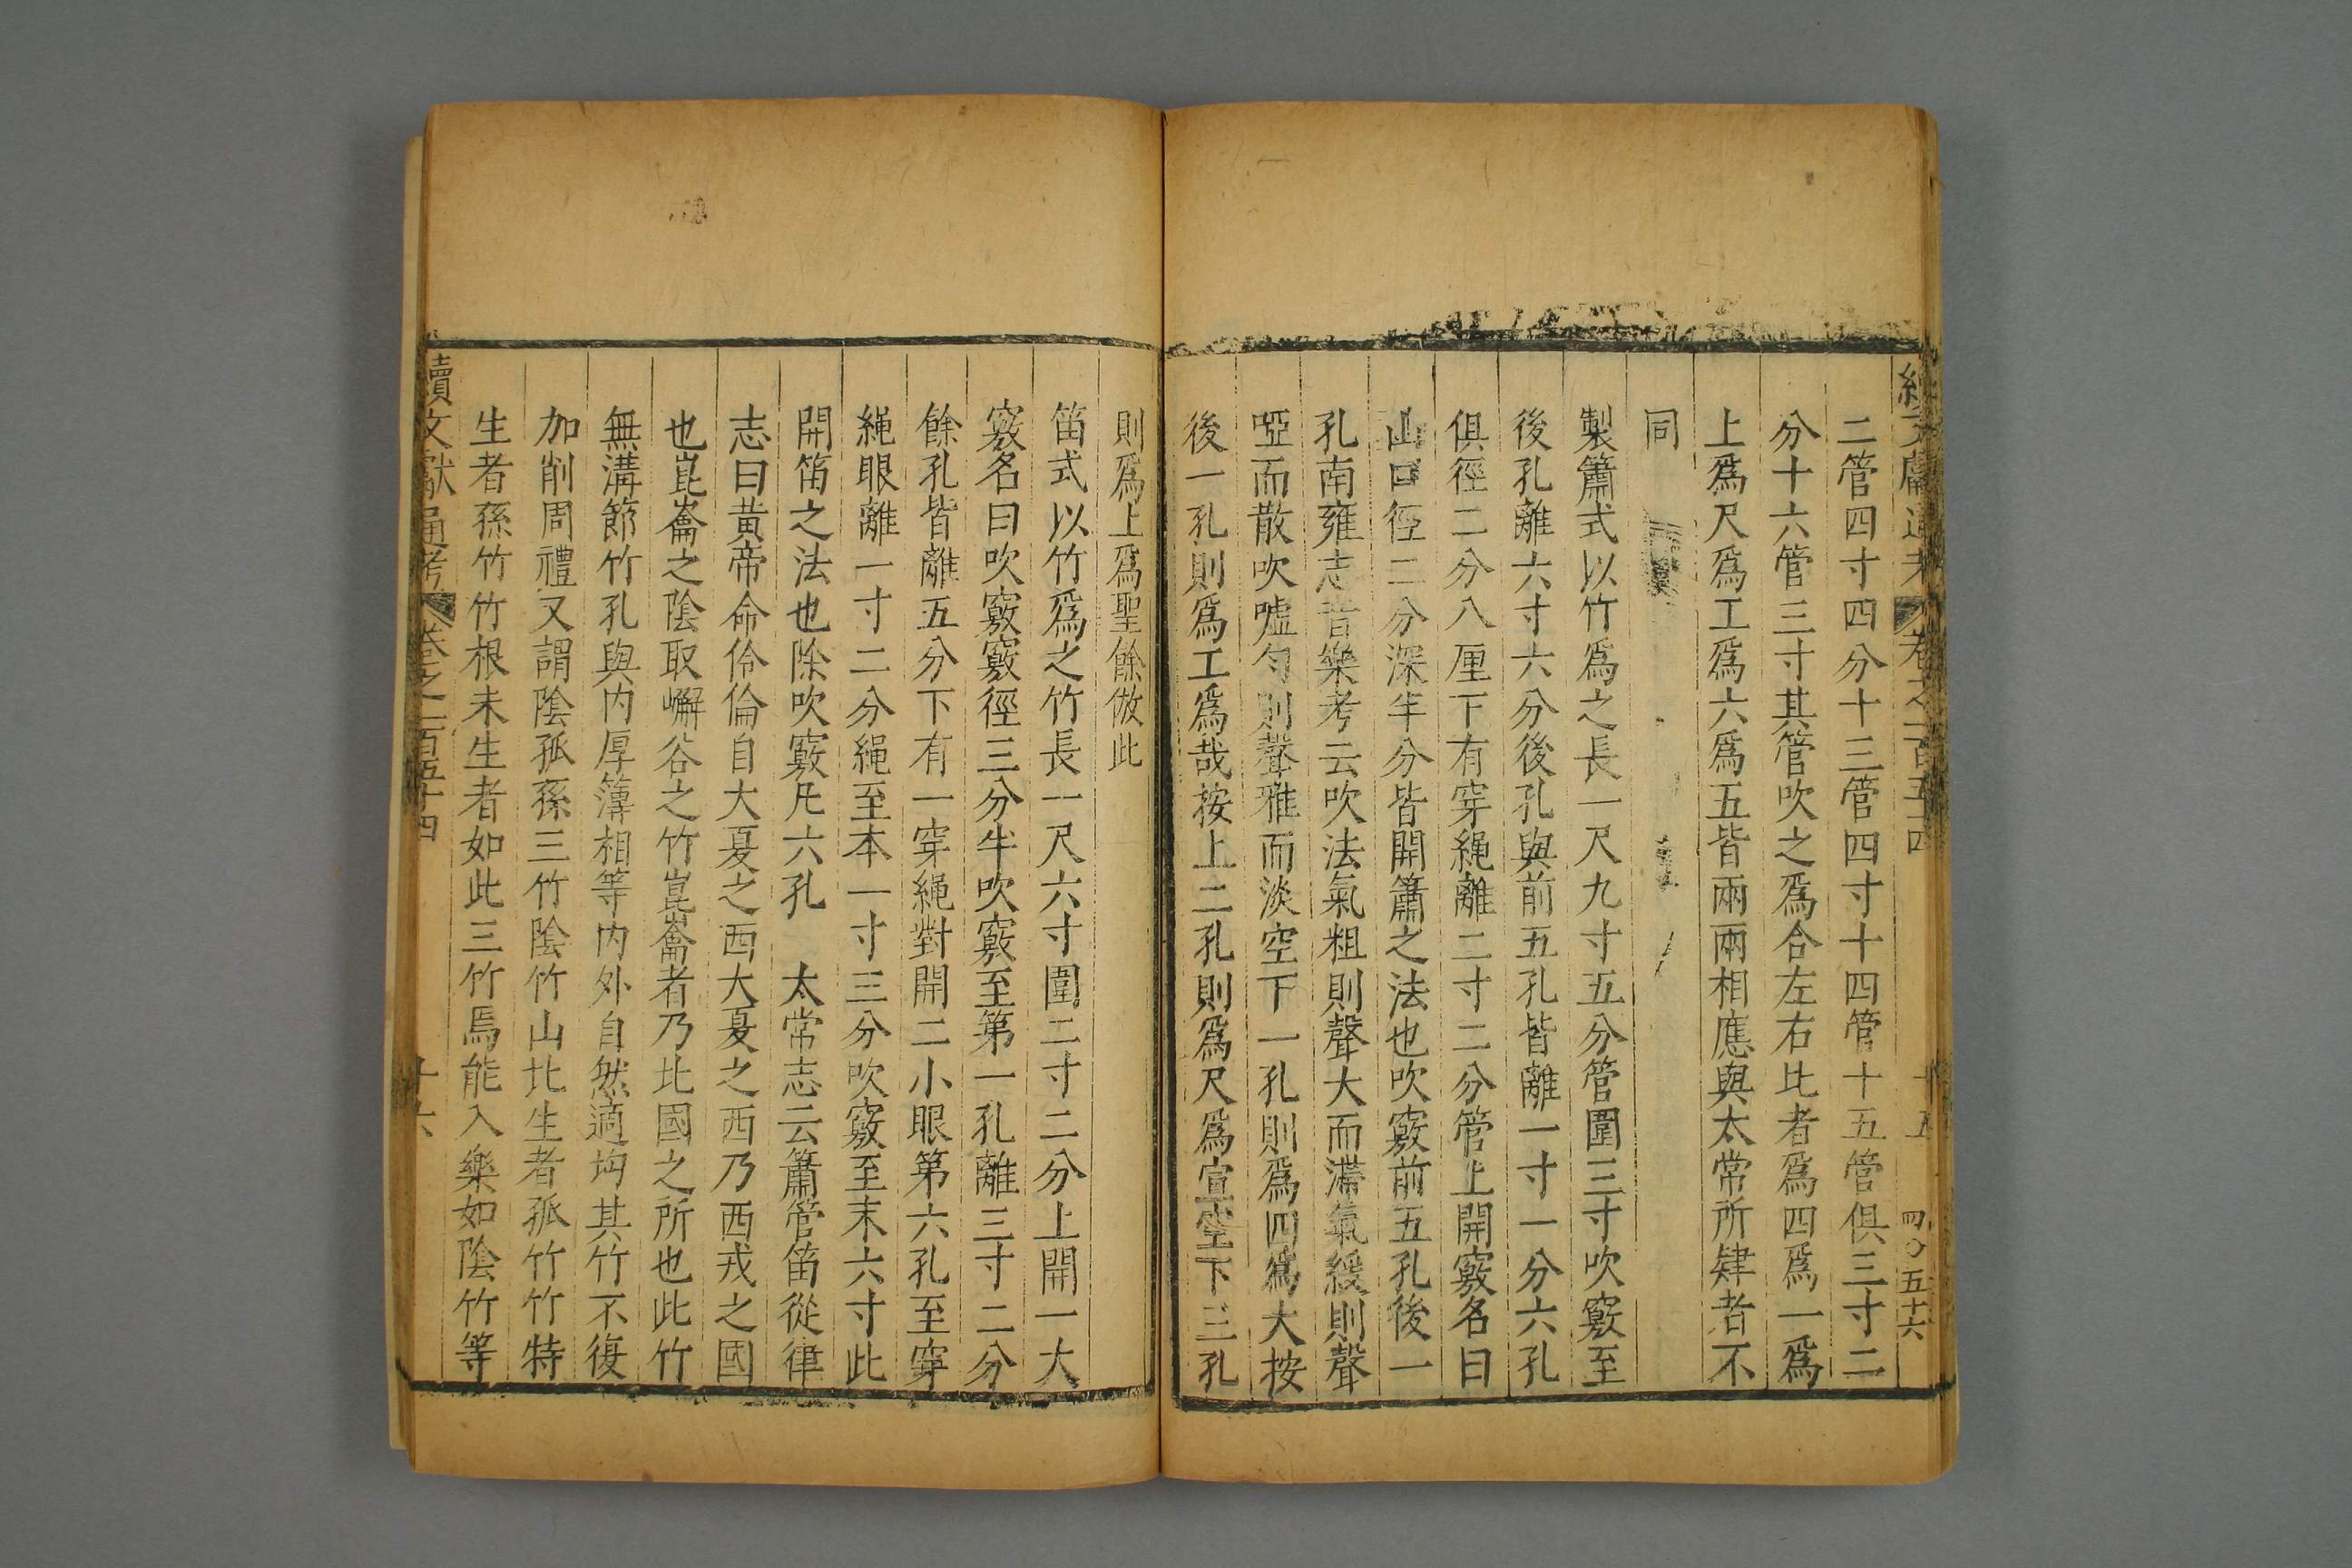 續文獻通考 卷之一百五十四 十五 四〇五十六
二管四寸四分十三管四寸十四管十五管俱三寸二
分十六管三寸其管吹之爲合左右比者爲四爲一爲
上爲尺爲工爲六爲五皆兩兩相應與太常所肄者不
同
製簫式以竹爲之長一尺九寸五分管圍三寸吹竅至
後孔離六寸六分後孔與前五孔皆離一寸一分六孔
俱徑二分八厘下有穿繩離二寸二分管上開竅名曰
山口徑二分深半分皆開簫之法也吹竅前五孔後一
孔南雍志音樂考云吹法氣粗則聲大而滯氣緩則聲
啞而散吹噓勻則聲雅而淡空下一孔則爲四爲大按
後一孔則爲工爲哉按上二孔則爲尺爲宣空下三孔
則爲上爲聖餘倣此
笛式以竹爲之竹長一尺六寸圍二寸二分上開一大
竅名曰吹竅竅徑三分半吹竅至第一孔離三寸二分
餘孔皆離五分下有一穿繩對開二小眼第六孔至穿
繩眼離一寸二分繩至本一寸三分吹竅至末六寸此
開笛之法也除吹竅凡六孔 太常志云簫管笛從律
志曰黃帝命伶倫自大夏之西大夏之西乃西戎之國
也崑崙之陰取嶰谷之竹崑崙者乃北國之所也此竹
無溝節竹孔與内厚薄相等内外自然適均其竹不復
加削周禮又謂陰孤孫三竹陰竹山北生者孤竹竹特
生者孫竹竹根未生者如此三竹焉能入樂如陰竹等
續文獻通考 卷之一百五十四 十六